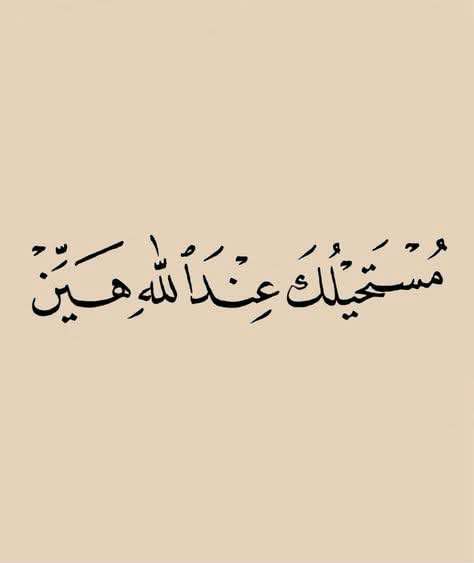 مُسْتَحِيْلُكَ عِنْدَ ٱللّٰهِ هَيِّنْ